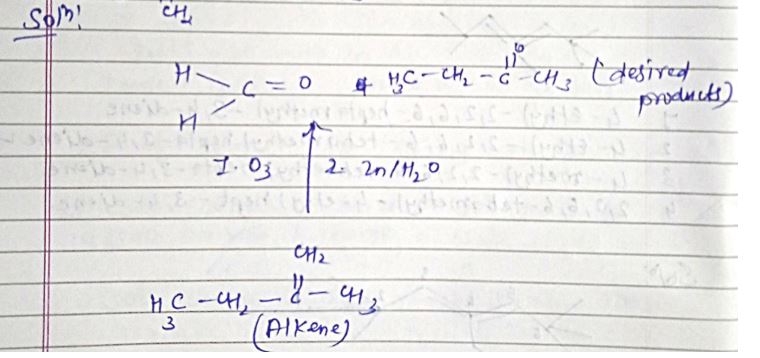 Solⁿ:
CH₂
H
C = O + H₃C – CH₂ – C – CH₃ (desired
O
H
products)
1. O₃ 2. Zn/H₂O
CH₂
H₃C – CH₂ – C – CH₃
(Alkene)